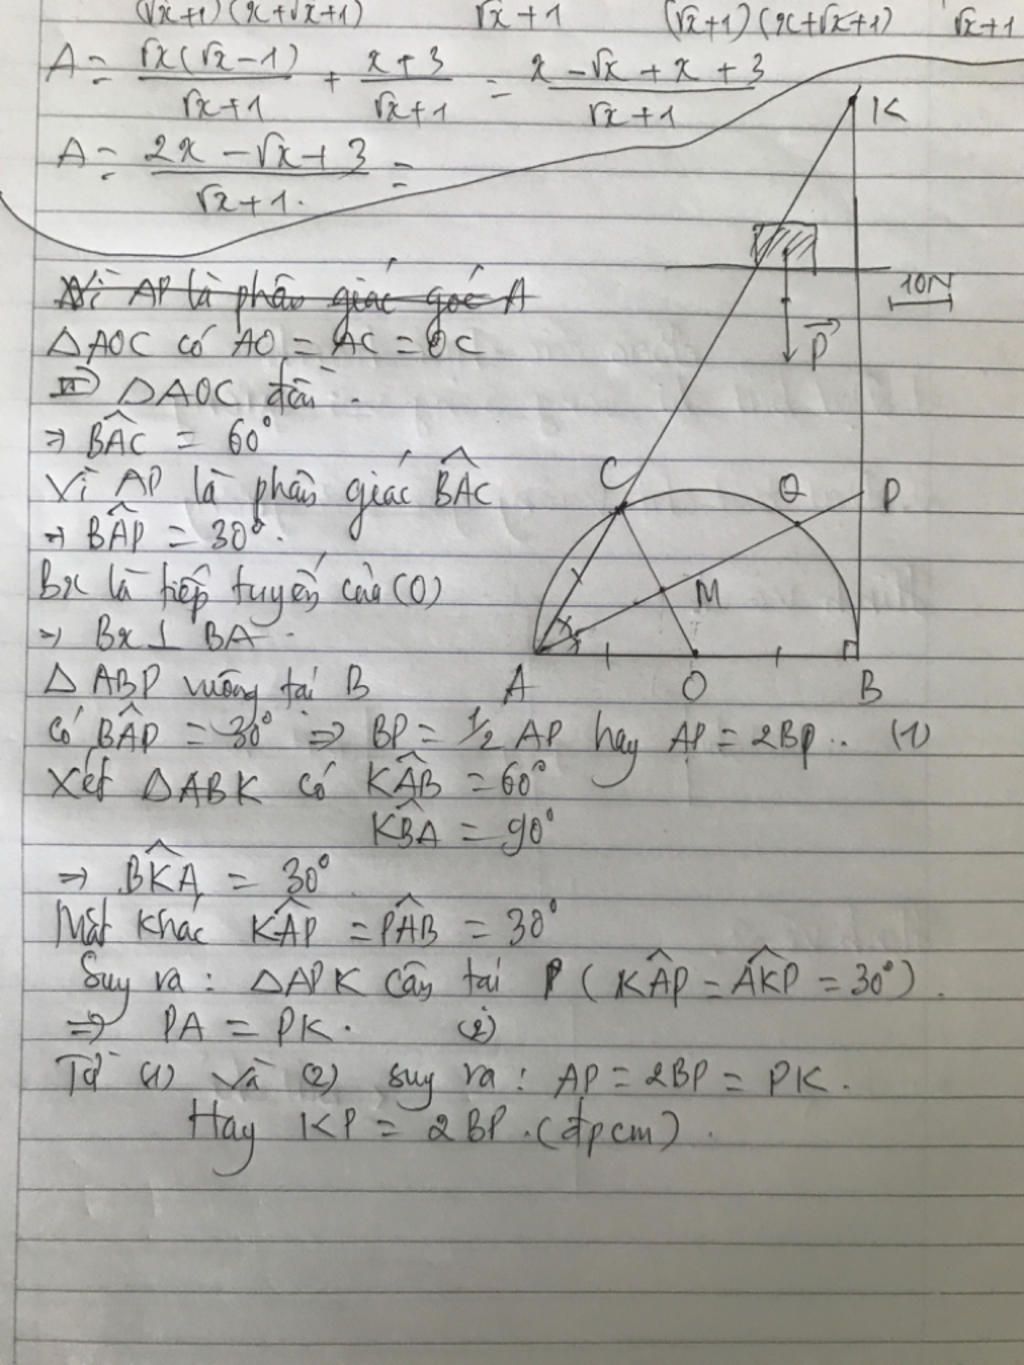 (√x+1)(x+√x+1) √x+1 (√x+1)(x+√x+1) √x+1
A = √x(√x-1)/√x+1 + x+3/√x+1 = x-√x+x+3/√x+1
A = 2x-√x+3/√x+1. =
K
Vì AP là phân giác góc A
10N
P
ΔAOC có AO = AC = OC
=> ΔAOC đều.
=> BAC = 60°
Vì AP là phân giác BAC
=> BAP = 30°.
Bx là tiếp tuyến của (O)
=> Bx ⊥ BA.
C Q P
M
A O B
Δ ABP vuông tại B
Có BAP = 30° => BP = 1/2 AP hay AP = 2BP.. (1)
Xét ΔABK có KAB = 60°
KBA = 90°
=> BKA = 30°
Mặt khác KAP = PAB = 30°
Suy ra: ΔAPK cân tại P (KAP = AKP = 30°).
=> PA = PK. (2)
Từ (1) và (2) suy ra: AP = 2BP = PK.
Hay KP = 2BP.(đpcm).